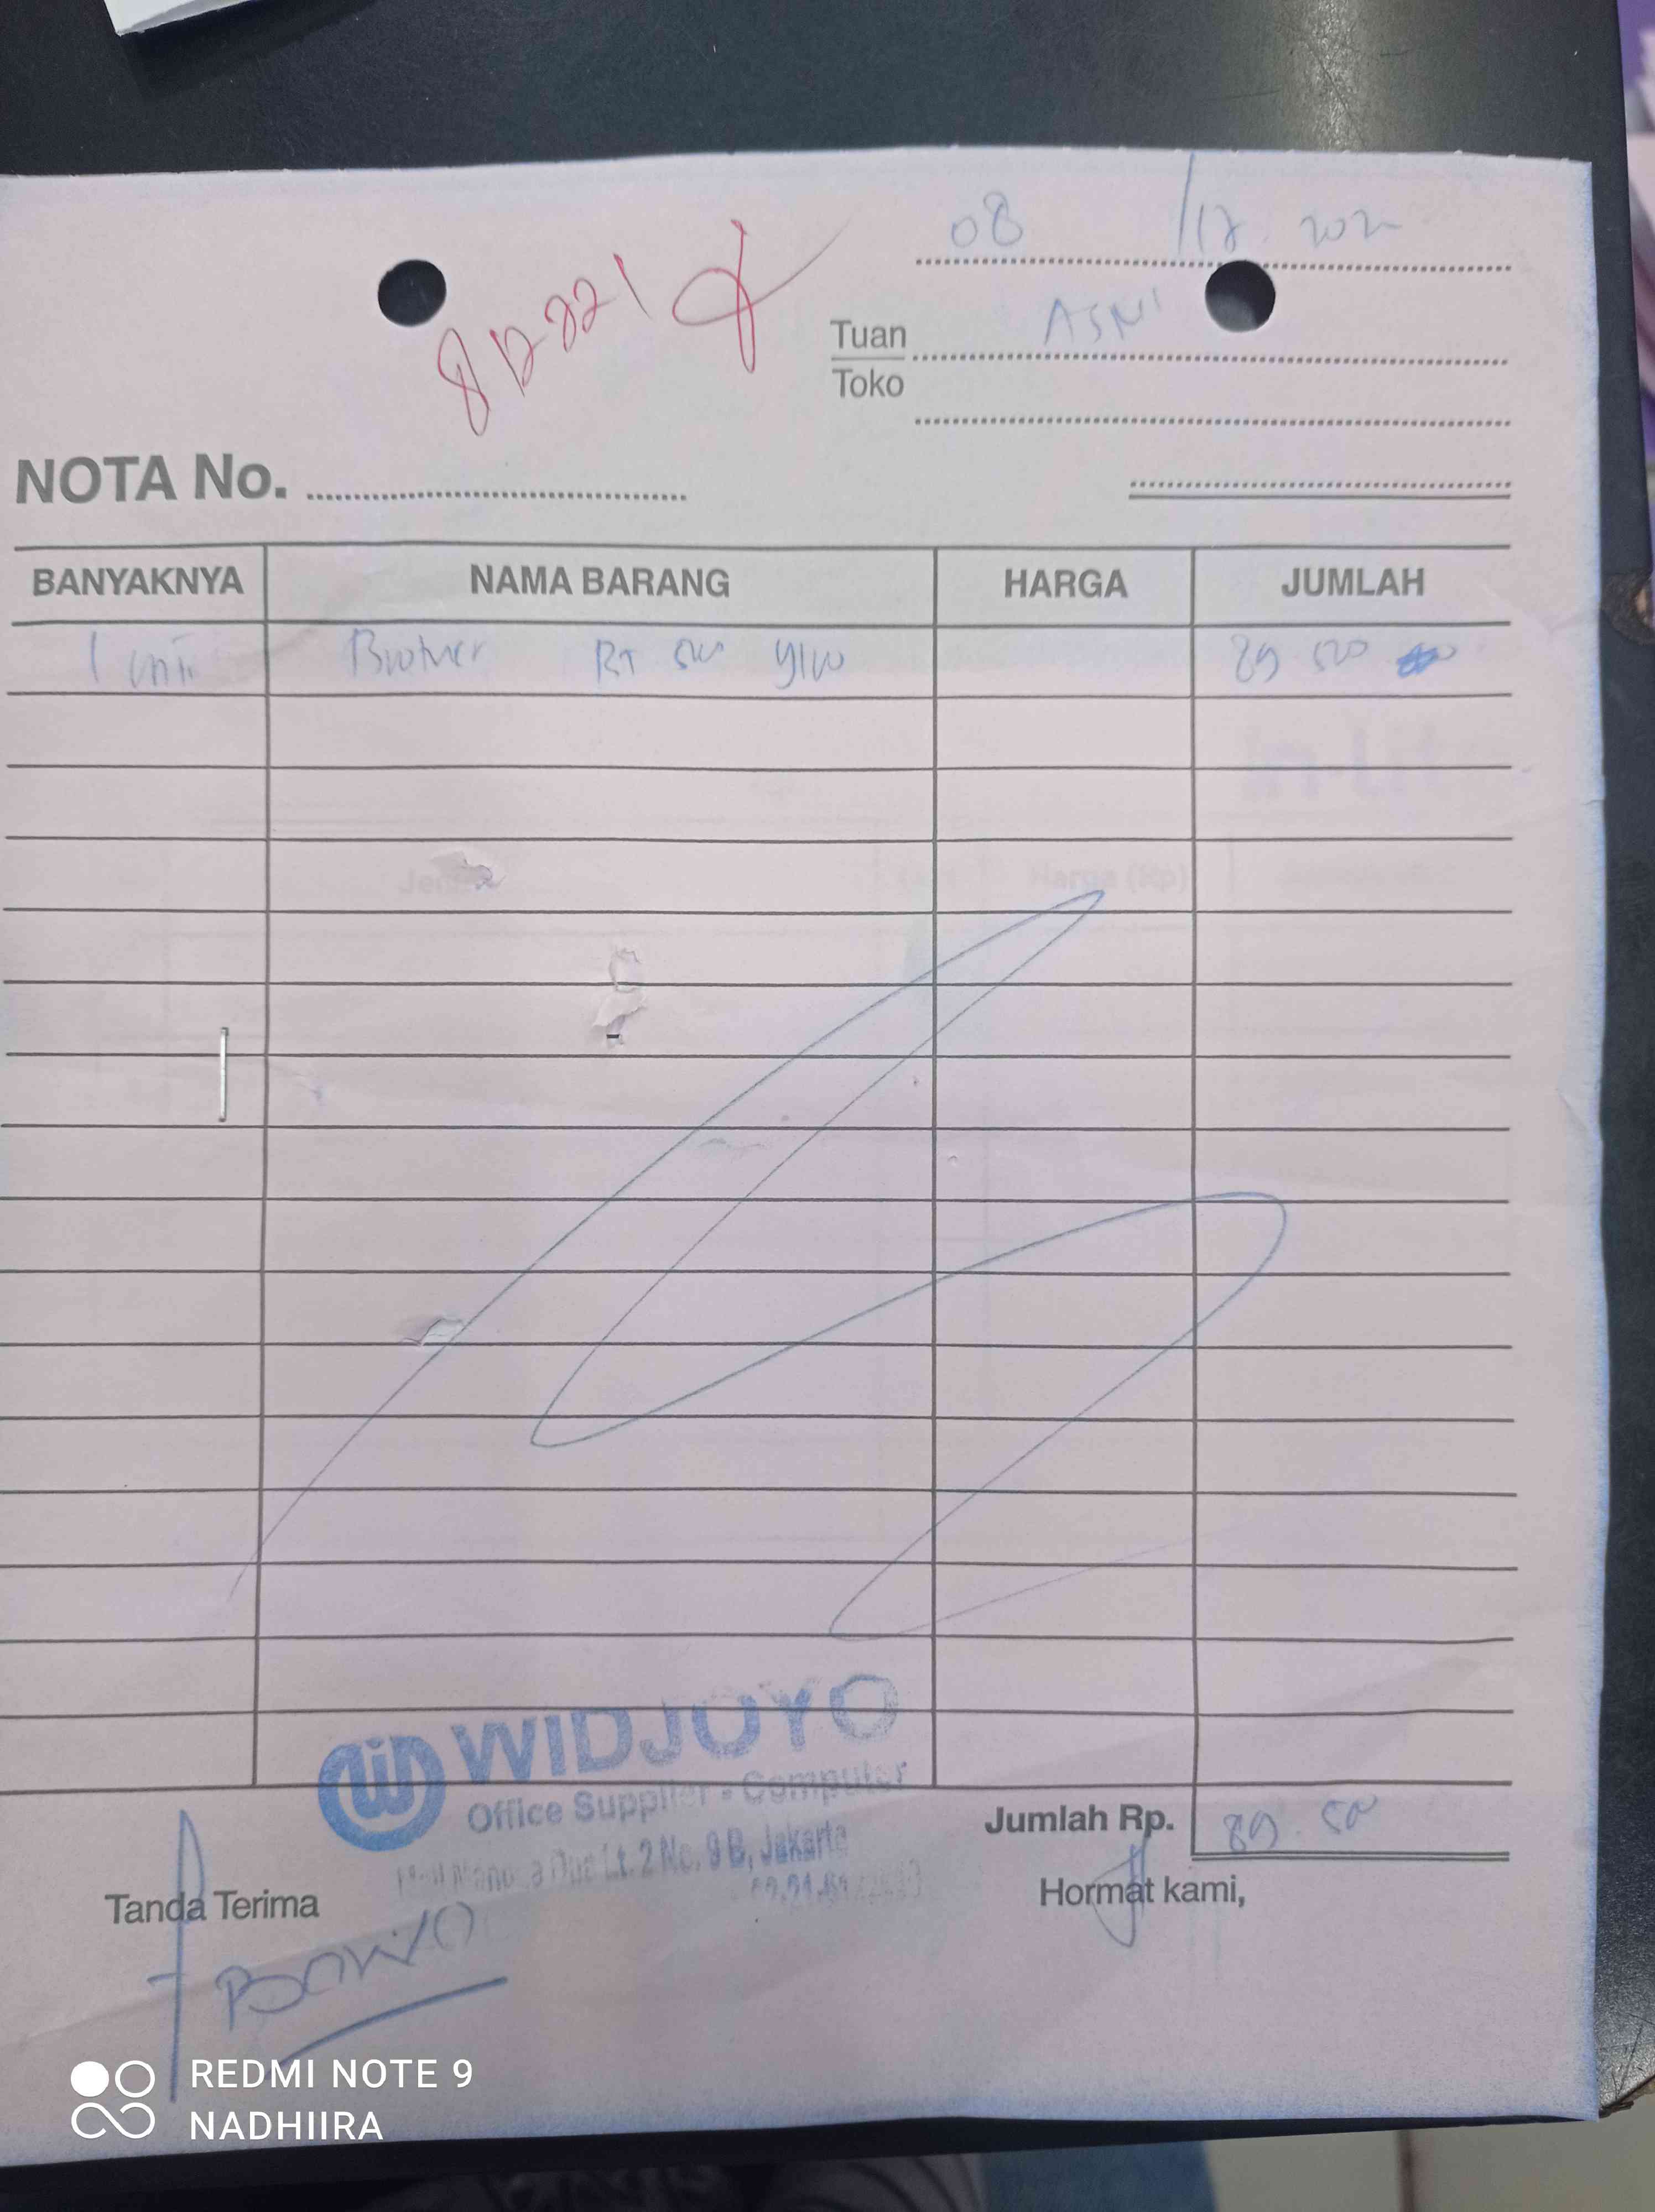 08 /12. 202
8 12-2021
Tuan ASNI
Toko
NOTA No.
BANYAKNYA NAMA BARANG HARGA JUMLAH
1 unit Brother 89 500
WIDJOYO
Office Supplier - Computer
Lt. 2 No. 9 B, Jakarta
Jumlah Rp. 89.50
Tanda Terima Hormat kami,
REDMI NOTE 9
NADHIIRA